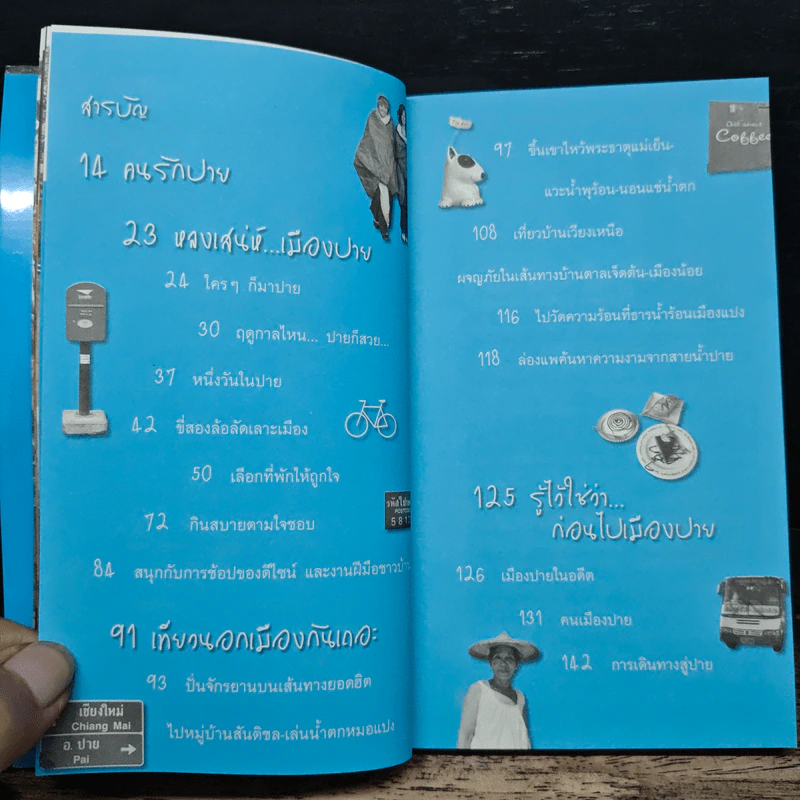 สารบัญ
14 คนรักปาย
23 หลงเสน่ห์...เมืองปาย
24 ใครๆ ก็มาปาย
30 ฤดูกาลไหน... ปายก็สวย...
37 หนึ่งวันในปาย
42 ขี่สองล้อลัดเลาะเมือง
50 เลือกที่พักให้ถูกใจ
72 กินสบายตามใจชอบ
84 สนุกกับการช้อปของดีไซน์ และงานฝีมือชาวบ้าน
91 เที่ยวนอกเมืองกันเถอะ
93 ปั่นจักรยานบนเส้นทางยอดฮิต
ไปหมู่บ้านสันติชล-เล่นน้ำตกหมอแปง
เชียงใหม่
Chiang Mai
อ. ปาย
Pai
97 ขึ้นเขาไหว้พระธาตุแม่เย็น-
แวะน้ำพุร้อน-นอนแช่น้ำตก
Coffee
108 เที่ยวบ้านเวียงเหนือ
ผจญภัยในเส้นทางบ้านตาลเจ็ดต้น-เมืองน้อย
116 ไปวัดความร้อนที่ธารน้ำร้อนเมืองแปง
118 ล่องแพค้นหาความงามจากสายน้ำปาย
125 รู้ไว้ใช่ว่า...
ก่อนไปเมืองปาย
126 เมืองปายในอดีต
131 คนเมืองปาย
142 การเดินทางสู่ปาย